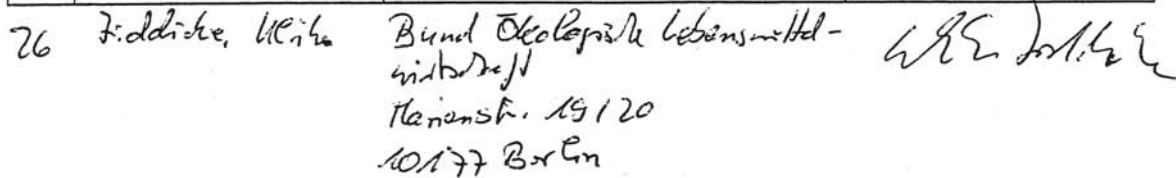 26 Fiddicke, Ulrike Bund Ökologische Lebensmittel-
wirtschaft
Marienstr. 19/20
10177 Berlin